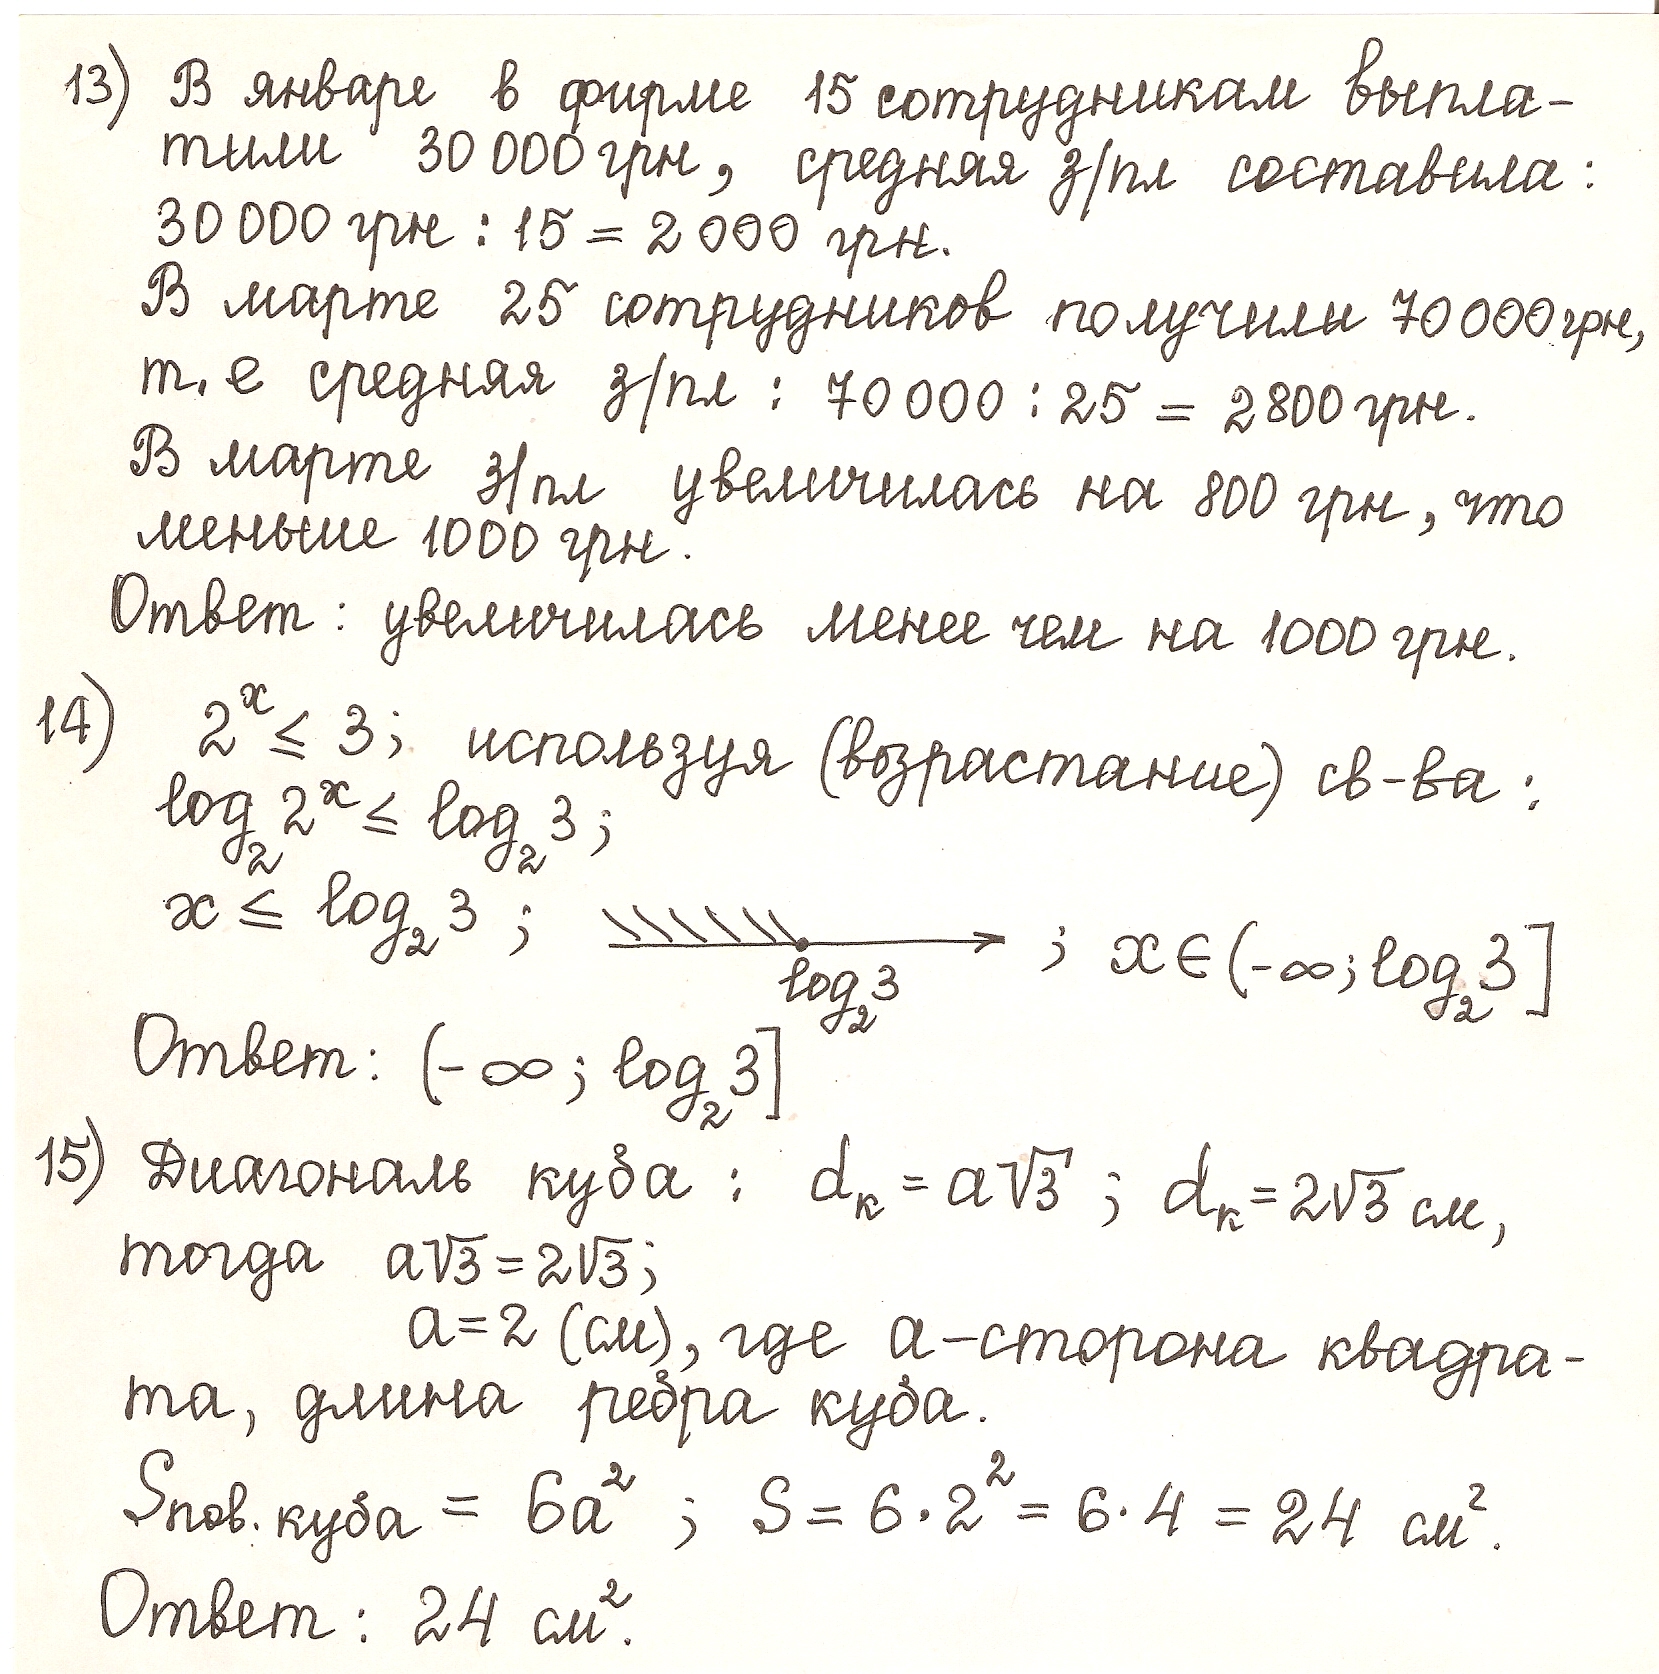 13) В январе в фирме 15 сотрудникам выпла-
тили 30 000 грн, средняя з/пл составила:
30 000 грн : 15 = 2 000 грн.
В марте 25 сотрудников получили 70 000 грн,
т. е средняя з/пл : 70 000 : 25 = 2 800 грн.
В марте з/пл увеличилась на 800 грн, что
меньше 1000 грн.
Ответ: увеличилась менее чем на 1000 грн.
14) 2^x ≤ 3; используя (возрастание) св-ва:
log₂ 2^x ≤ log₂ 3;
x ≤ log₂ 3 ; ; x ∈ (-∞; log₂ 3]
log₂ 3
Ответ: (-∞; log₂ 3]
15) Диагональ куба : dₖ = a√3 ; dₖ = 2√3 см,
тогда a√3 = 2√3;
a = 2 (см), где a - сторона квадра-
та, длина ребра куба.
Sпов. куба = 6a² ; S = 6 · 2² = 6 · 4 = 24 см².
Ответ: 24 см².